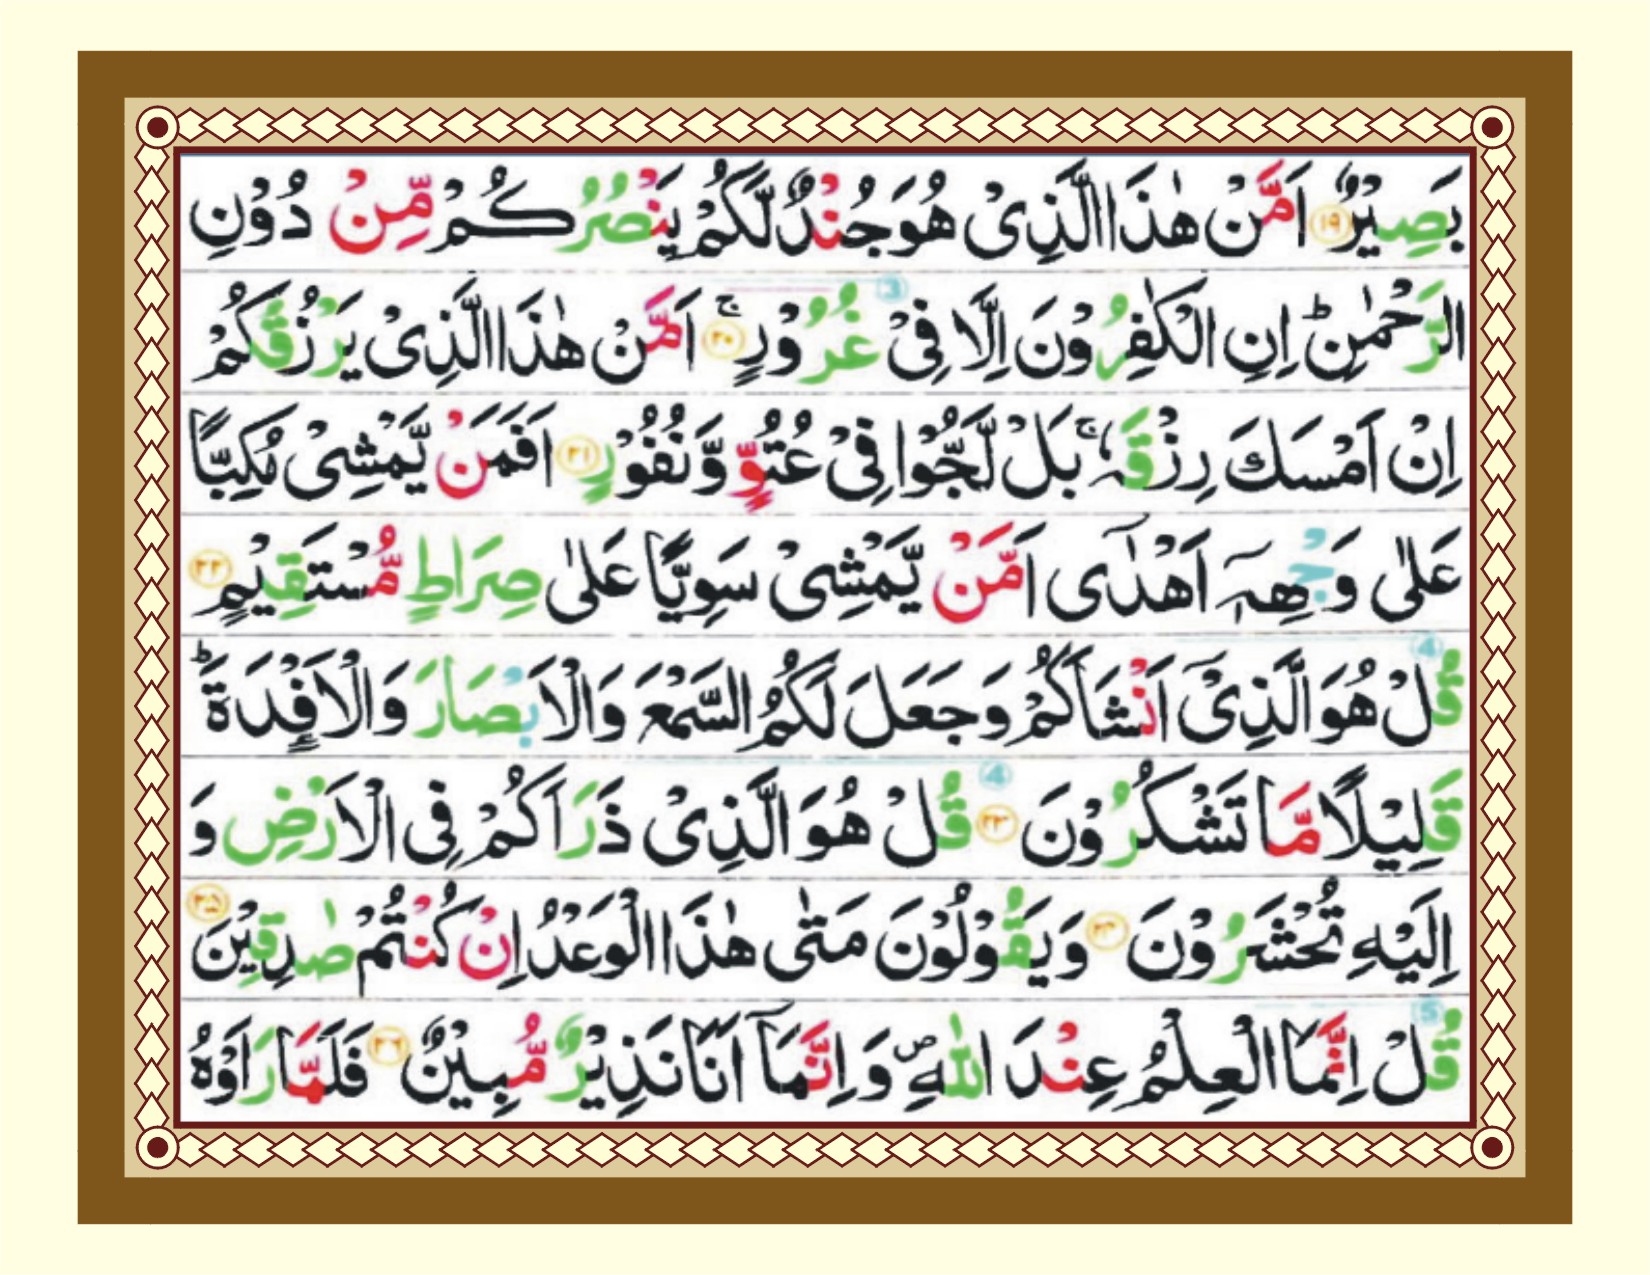 بَصِيْرٌ ۝۱۹ اَمَّنْ هٰذَا الَّذِىْ هُوَ جُنْدٌ لَّكُمْ يَنْصُرُكُمْ مِّنْ دُوْنِ
3
الرَّحْمٰنِ ؕ اِنِ الْكٰفِرُوْنَ اِلَّا فِىْ غُرُوْرٍ ۚ ۝۲۰ اَمَّنْ هٰذَا الَّذِىْ يَرْزُقُكُمْ
اِنْ اَمْسَكَ رِزْقَهٗ ۚ بَلْ لَّجُّوْا فِىْ عُتُوٍّ وَّنُفُوْرٍ ۝۲۱ اَفَمَنْ يَّمْشِىْ مُكِبًّا
عَلٰى وَجْهِهٖۤ اَهْدٰٓى اَمَّنْ يَّمْشِىْ سَوِيًّا عَلٰى صِرَاطٍ مُّسْتَقِيْمٍ ۝۲۲
4
قُلْ هُوَ الَّذِىْۤ اَنْشَاَكُمْ وَجَعَلَ لَكُمُ السَّمْعَ وَالْاَبْصَارَ وَالْاَفْـِٕدَةَ ؕ
4
قَلِيْلًا مَّا تَشْكُرُوْنَ ۝۲۳ قُلْ هُوَ الَّذِىْ ذَرَاَكُمْ فِى الْاَرْضِ وَ
اِلَيْهِ تُحْشَرُوْنَ ۝۲۴ وَيَقُوْلُوْنَ مَتٰى هٰذَا الْوَعْدُ اِنْ كُنْتُمْ صٰدِقِيْنَ ۝۲۵
5
قُلْ اِنَّمَا الْعِلْمُ عِنْدَ اللّٰهِ ۪ وَاِنَّمَاۤ اَنَا نَذِيْرٌ مُّبِيْنٌ ۝۲۶ فَلَمَّا رَاَوْهُ